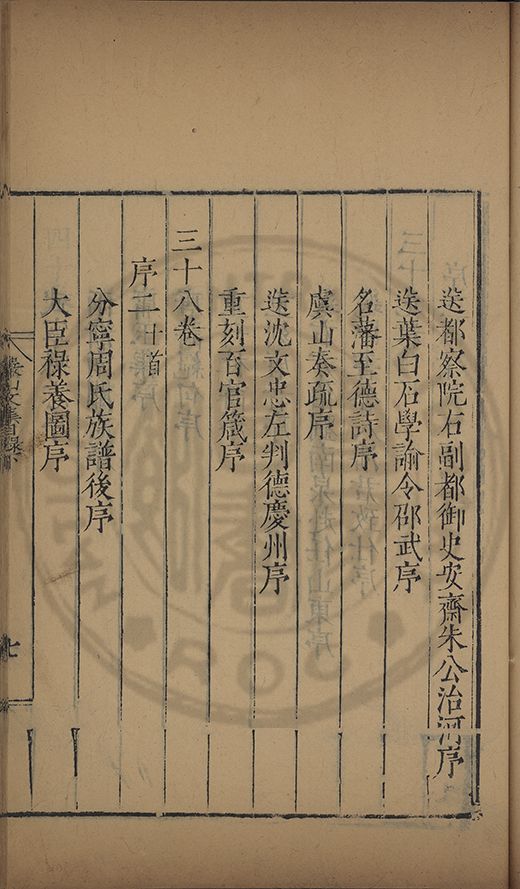 送都察院右副都御史安齋朱公治河序
送葉白石學諭令邵武序
名藩至德詩序
虞山奏疏序
送沈文忠左判德慶州序
重刻百官箴序
三十八卷
序二十首
分寧周氏族譜後序
大臣祿養圖序
七